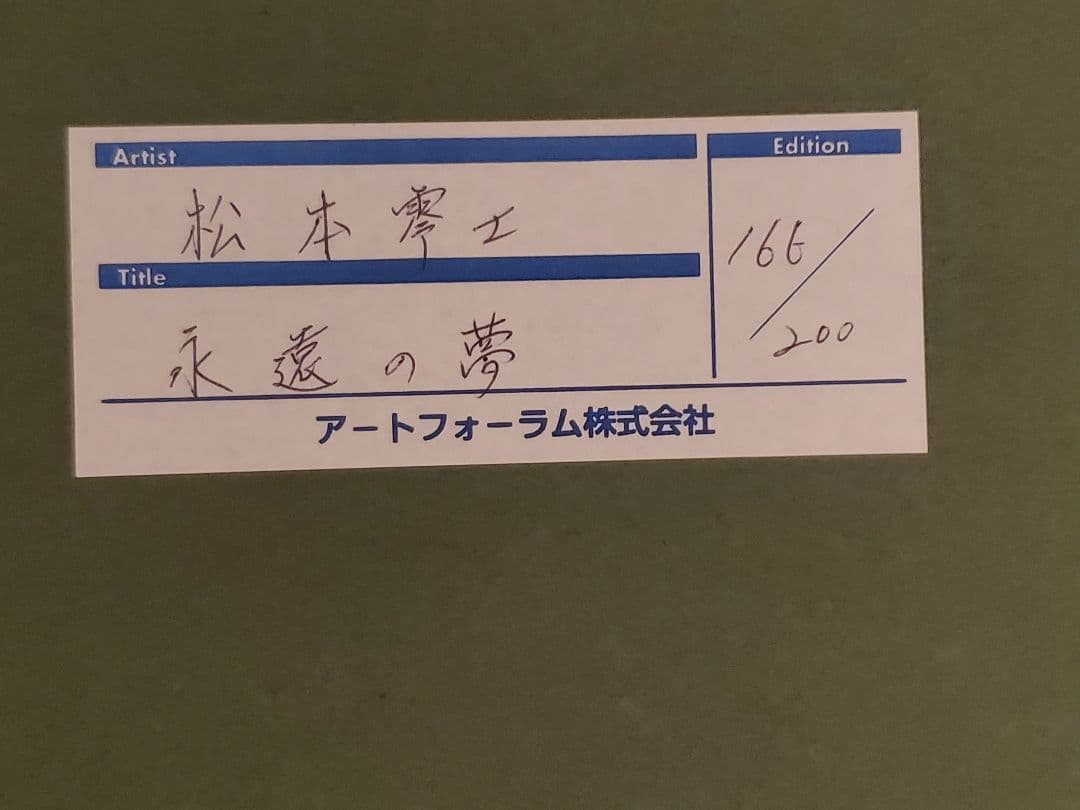 Artist
松本零士
Title
永遠の夢
Edition
166/200
アートフォーラム株式会社